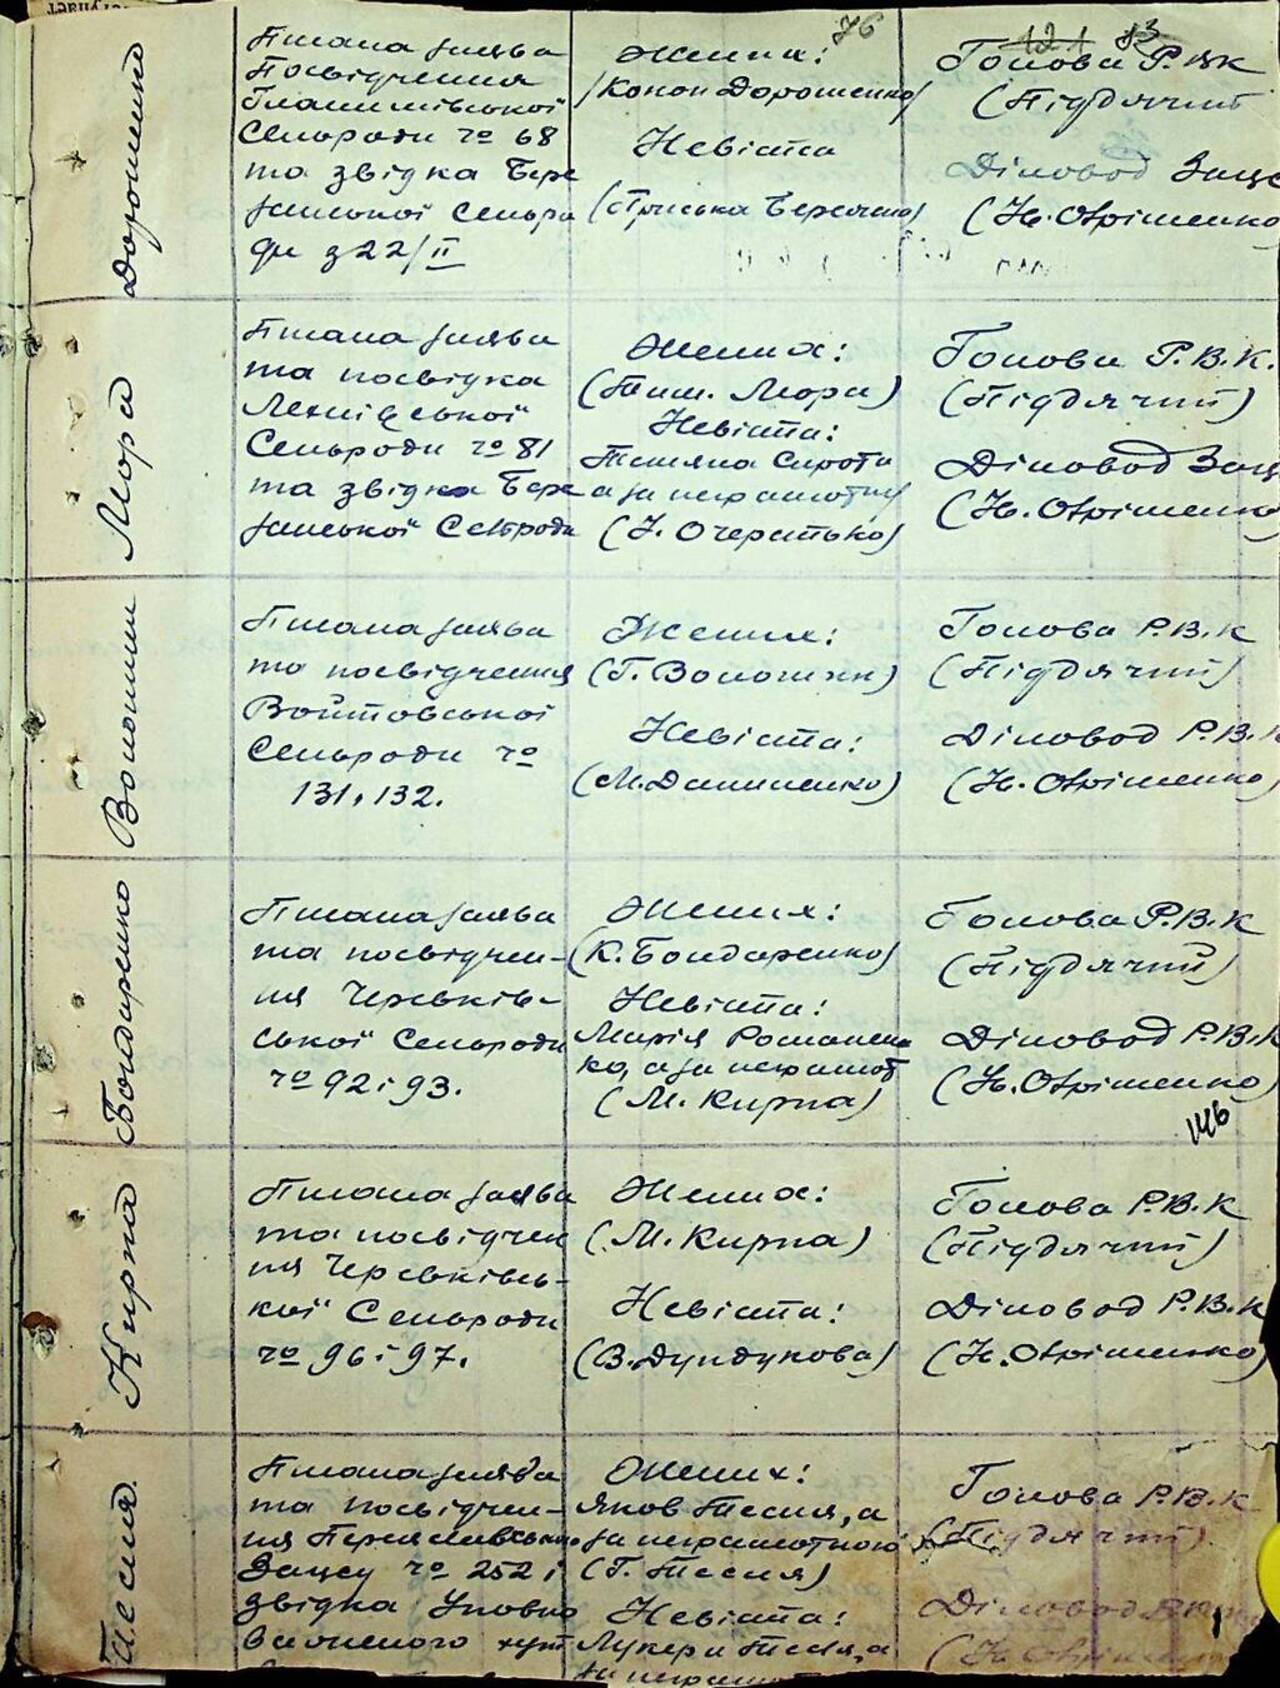 76
121 83
Дорошенко
Писана заява
Посвідчення
Сельради № 68
та звідка Бере
занської Сельра
ди з 22/II
Жених:
/Конон Дорошенко/
Невіста
(Пріська Береж)
Голова Р.ВК
(Підлячий
Діловод Загс
(Н. Охріменко
Мора
Писана заява
та посвідка
Лехніівської
Сельради № 81
та звідка Бере
занської Сельради
Жених:
(Тим. Мора)
Невіста:
Тетяна Сирота
а за неграмотну
(І. Очеретько)
Голова Р.В.К.
(Підлячий)
Діловод Загс
(Н. Охріменко
Волошин
Писана заява
та посвідчення
Войтовської
Сельради №
131, 132.
Жених:
(Г. Волошин)
Невіста:
(М. Даниленко)
Голова Р.В.К
(Підлячий)
Діловод Р.В.К
(Н. Охріменко)
Бондаренко
Писана заява
та посвідчен-
ня Черевків-
ської Сельради
№ 92 і 93.
Жених:
(К. Бондаренко)
Невіста:
Марія Романен
ко, а за неграмот
(М. Кирпа)
Голова Р.В.К
(Підлячий)
Діловод Р.В.К
(Н. Охріменко)
Кирпа
Писана заява
та посвідчен
ня Черевківсь-
кої Сельради
№ 96 і 97.
Жених:
(М. Кирпа)
Невіста:
(В. Дундукова)
Голова Р.В.К
(Підлячий)
Діловод Р.В.К
(Н. Охріменко)
Тесля.
Писана заява
та посвідчен-
ня Переяславського
Загсу № 252 і
звідка Уповно
важеного хут
Жених:
Яков Тесля, а
за неграмотного
(Г. Тесля)
Невіста:
Лукеря Тесля, а
за неграмот
Голова Р.В.К
(Підлячий)
Діловод
(Н. Охріменко